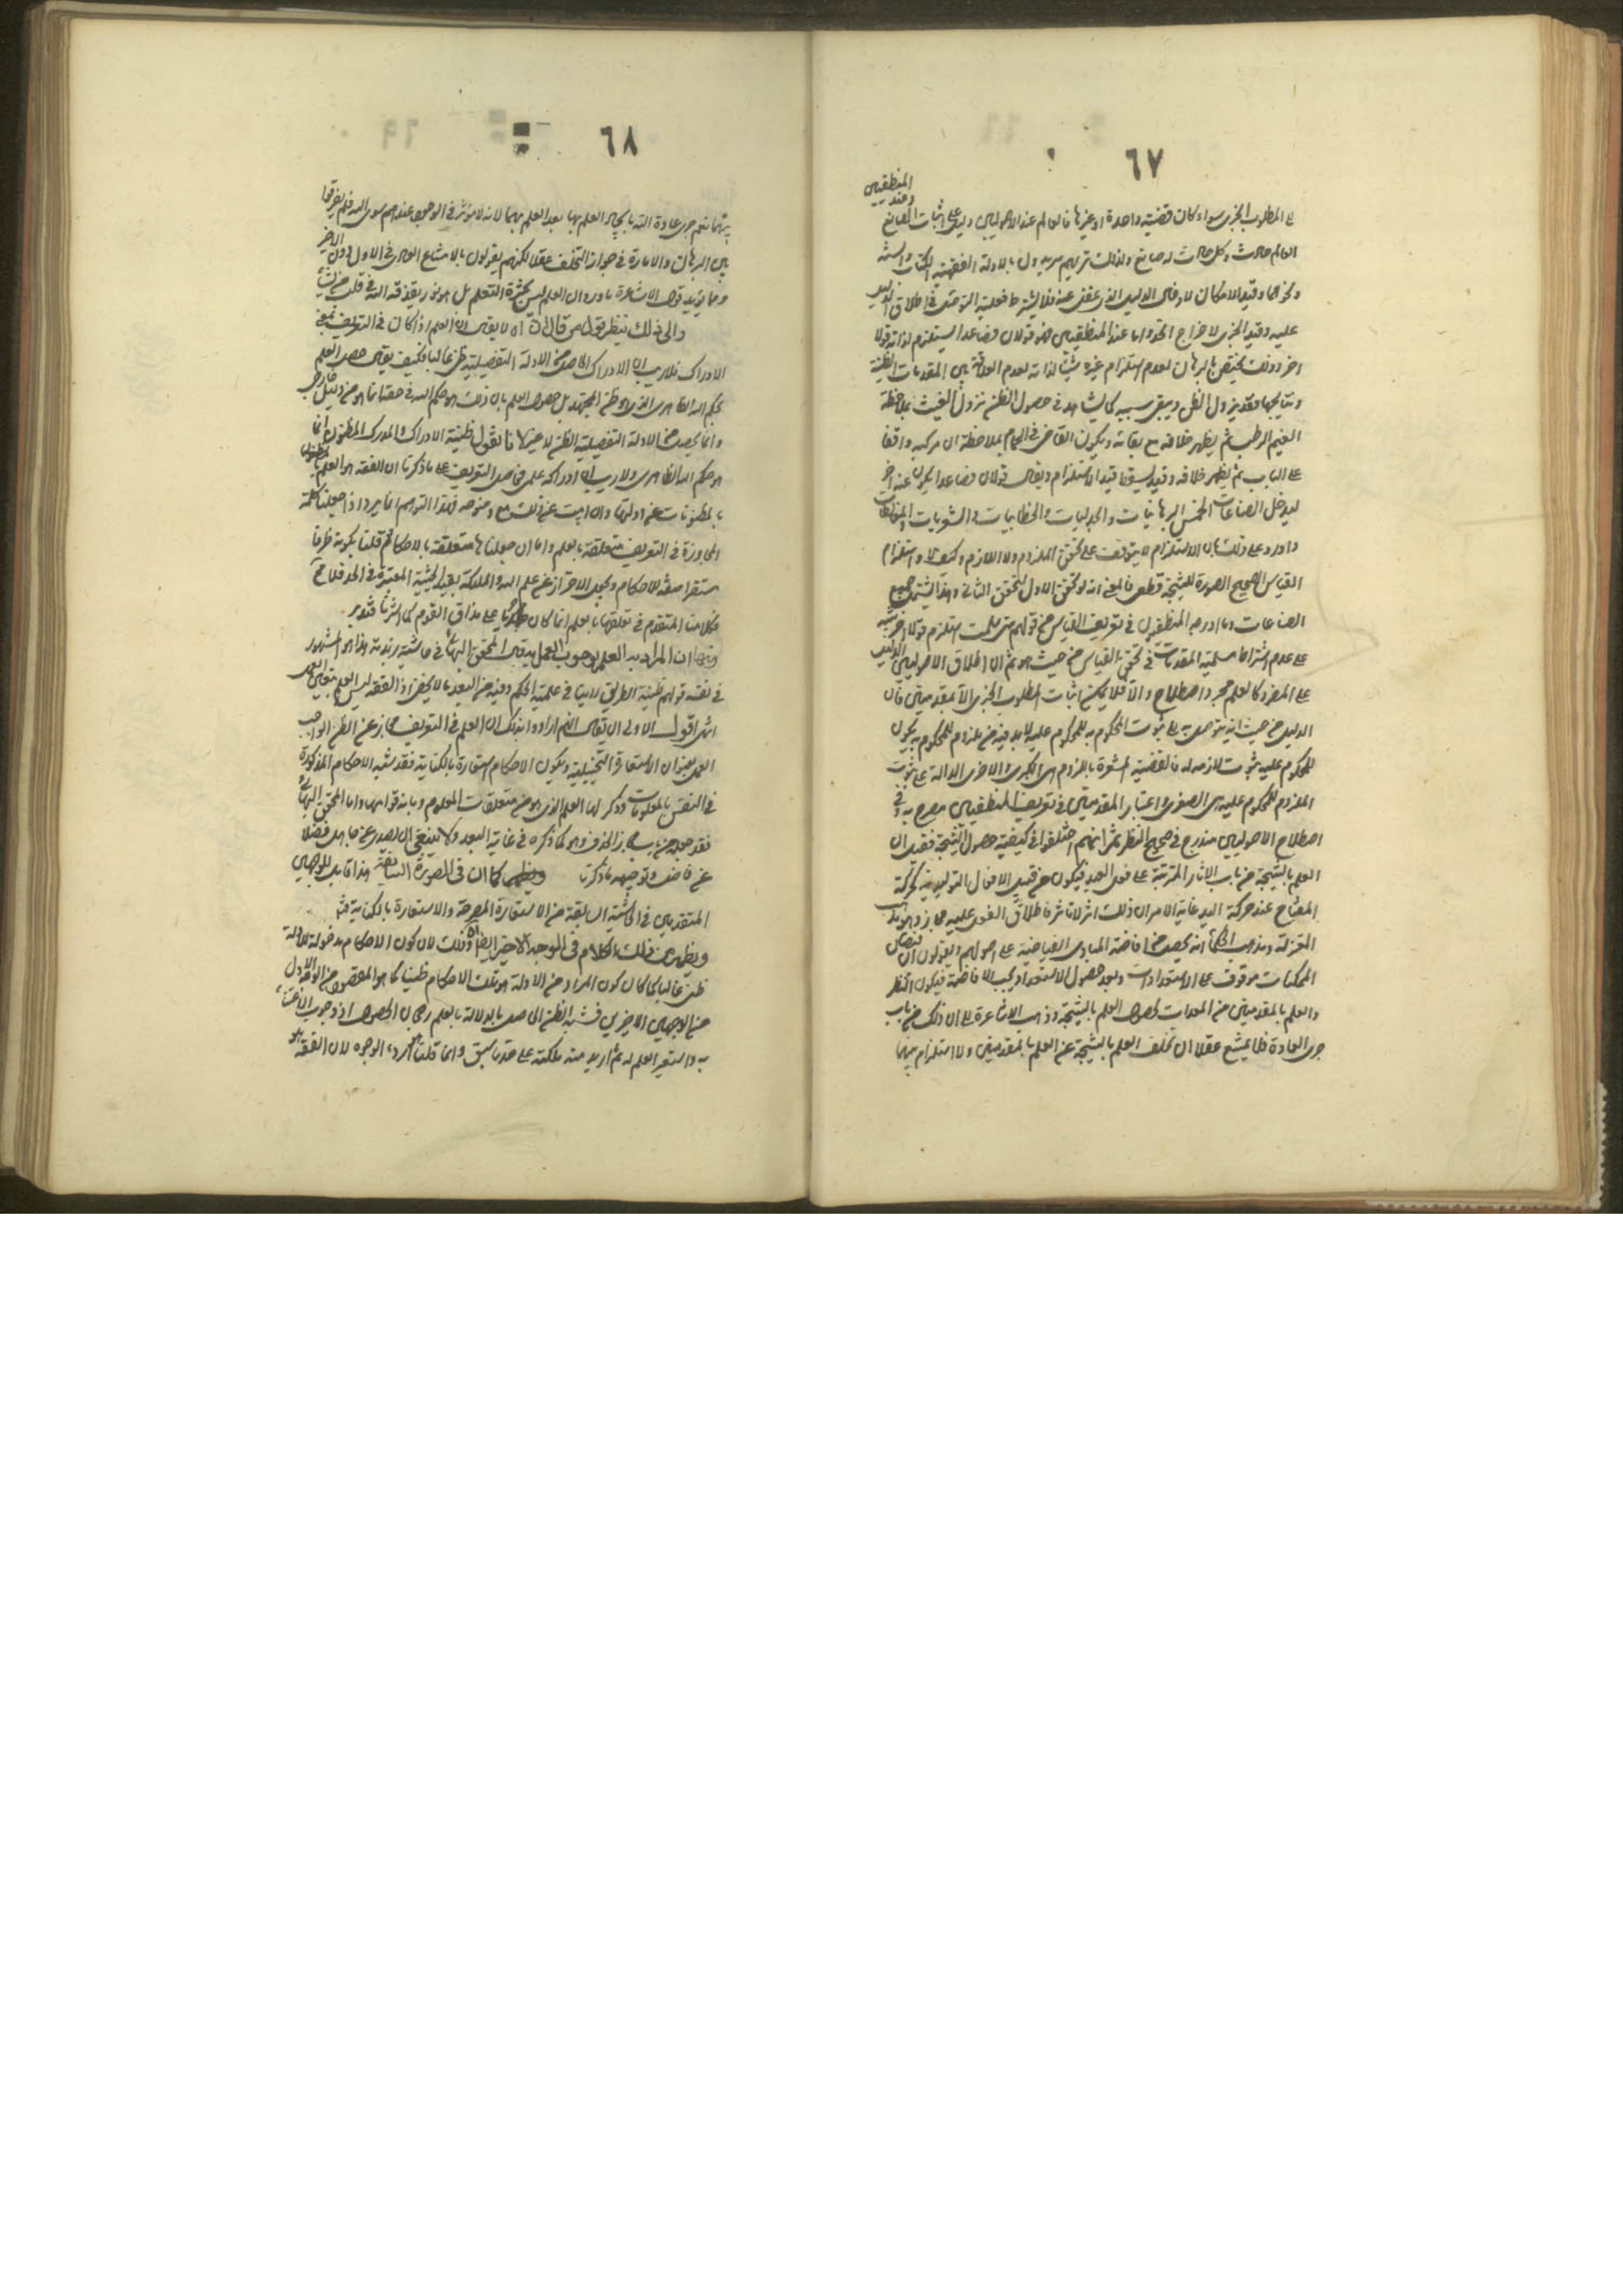 ٦٧
المنطقيين
الى المطلوب الخبرى سواء كان قضية واحدة او غيرها فالعالم عند الاصوليين دليل على اثبات الصانع وعند
العالم حادث وكل حادث له صانع ولذلك تريهم يريدون بالادلة الفقهية الكتاب والسنة
ونحوهما وقيد الامكان لادخال الدليل الذى غفل عنه فلا يشترط فعلية التوصل فى اطلاق الدليل
عليه وقيد الخبرى لاخراج الحد واما عند المنطقيين فهو قولان فصاعدا يستلزم لذاته قولا
اخر وذلك يختص بالبرهان لعدم استلزام غيره شيئا لذاته لعدم العلاقة بين المقدمات الظنية
ونتايجها فقد يزول الظن ويبقى سببه كما يشاهد فى حصول الظن بنزول الغيث بملاحظة
الغيم الرطب ثم يظهر خلافه مع بقائه وبكون القاضى فى الحمام بملاحظة ان مركبه واقفا
على الباب ثم يظهر خلافه وقد يسقط قيد الاستلزام ويقال قولان فصاعدا يكون عنه اخر
ليدخل الصناعات الخمس البرهانيات والجدليات والخطابيات والشعريات والمغالطات
واورد على ذلك بان الاستلزام لا يتوقف على تحقق الملزوم ولا اللازم وكيف لا واستلزام
القياس الصحيح الصورة للنتيجة قطعى فالمعنى انه لو تحقق الاول لتحقق الثانى وهذا يشتمل جميع
الصناعات وما ادرجه المنطقيون فى تعريف القياس من قولهم متى سلمت استلزم قولا اخر تنبيه
على عدم اشتراط مسلمية المقدمات فى تحقق القياس من حيث هو ثم ان اطلاق الاصوليين الدليل
على المفرد كالعالم مجرد اصطلاح والا فلا يمكن اثبات المطلوب الخبرى الا بمقدمتين فان
الدليل من حيث انه يتوصل به الى ثبوت المحكوم به للمحكوم عليه لابد فيه من ملزوم للمحكوم به يكون
للمحكوم عليه ثبوت لازمه له فالقضية المشعرة باللزوم هى الكبرى والاخرى الدالة على ثبوت
الملزوم للمحكوم عليه هى الصغرى واعتبار المقدمتين فى تعريف المنطقيين مصرح به وفى
اصطلاح الاصوليين مندرج فى صحيح النظر ثم انهم اختلفوا فى كيفية حصول النتيجة فقيل ان
العلم بالنتيجة من باب الاثار المترتبة على فعل العبد فيكون من قبيل الافعال التوليدية كحركة
المفتاح عند حركة اليد غاية الامر ان ذلك اثر لاثر فاطلاق الفعل عليه مجاز وهو مذهب
المعتزلة ومذهب الحكماء انه يحصل من افاضة المبادى الفياضة على اصولهم ويقولون ان فيضان
الممكنات موقوف على الاستعدادات وبعد حصول الاستعداد يجب الافاضة فيكون النظر
والعلم بالمقدمتين من المعدات لحصول العلم بالنتيجة وذهب الاشاعرة الى ان ذلك من باب
جرى العادة فلا يمتنع عقلا ان تخلف العلم بالنتيجة عن العلم بالمقدمتين ولا استلزام بينهما
٦٨
بينهما نعم جرى عادة الله بايجاد العلم بها بعد العلم بهما لانه لا مؤثر فى الوجود عندهم سوى الله فلم يفرقوا
بين البرهان والامارة فى جواز التخلف عقلا لكنهم يقولون بالامتناع العادى فى الاول دون الاخير
ومما يؤيد قول الاشاعرة ما ورد ان العلم ليس بكثرة التعلم بل هو نور يقذفه الله فى قلب من يشاء
والى ذلك ينظر قول من قال ان اه لا يقال ان العلم اذا كان فى التعريف بمعنى
الادراك فلا ريب ان الادراك الحاصل من الادلة التفصيلية ظن غالبا فكيف يقال حصل العلم
بحكم الله الظاهرى الذى هو ظن المجتهد بل حصول العلم بان ذلك هو حكم الله فى حقه انما هو من دليل خارجى
وانما يحصل من الادلة التفصيلية الظن لا غير لانا نقول ظنية الادراك والمدرك المظنون انما
هو حكم الله الظاهرى ولا ريب ان ادراكه علمى فحاصل التعريف على ما ذكرنا ان الفقه هو العلم بالمظنون
بالمظنونات عن ادلتها وان ابيت عن ذلك مع وضوحه فهذا التوهم انما يرد اذا جعلنا كلمة
المجاوزة فى التعريف متعلقة بالعلم واما ان جعلناها متعلقة بالاحكام ثم قلنا بكونه ظرفا
مستقرا صفة للاحكام ويجعل الاحتراز عن علم الله والملائكة بقيد الحيثية المعتبرة فى الحد فلا مح
فكلامنا المتقدم فى تعلقها بالعلم انما كان جاريا على مذاق القوم كما اشرنا فتدبر
ومنها ان المراد به العلم بوجوب العمل به قال المحقق البهائى فى حاشية زبدته هذا هو المشهور
فى تفسير قولهم ظنية الطريق لا ينافى علمية الحكم وفيه من البعد ما لا يخفى اذ الفقه ليس العلم بوجوب العمل
انتهى اقول الاولى ان يقال انهم ارادوا بذلك ان العلم فى التعريف مجاز عن الظن الواجب
العمل بعنوان الاستعارة التخييلية ويكون الاحكام استعارة بالكناية فقد شبه الاحكام المذكورة
فى النفس بالمعلومات وذكر لها العلم الذى هو من متعلقات المعلوم وما به قوامها واما المحقق البهائى
فقد جعله من باب مجاز الحذف وهو كما ذكره فى غاية البعد ولا ينبغى ان يصدر عن جاهل فضلا
عن فاضل وتوجيهه ما ذكرنا ويظهر كما ان فى الصورة السابقة هذا قابل للوجهين
المتقدمين فى الحاشية السابقة من الاستعارة المصرحة والاستعارة بالكناية منه
ويظهر من ذلك الكلام فى الوجه الاخير ايضا اه وذلك لان كون الاحكام مدلولة للادلة
ظن غالبا كما كان كون المراد من الادلة هو تلك الاحكام ظنيا كما هو المقصود من الوجه الاول
من الوجهين الاخيرين فشبه الظن الحاصل بالدلالة بالعلم رجحان الحصول او وجوب الاعتناء
به واستعير العلم له ثم اريد منه ملكته على حذو ما سبق وانما قلنا هو اردء الوجوه لان الفقه هو